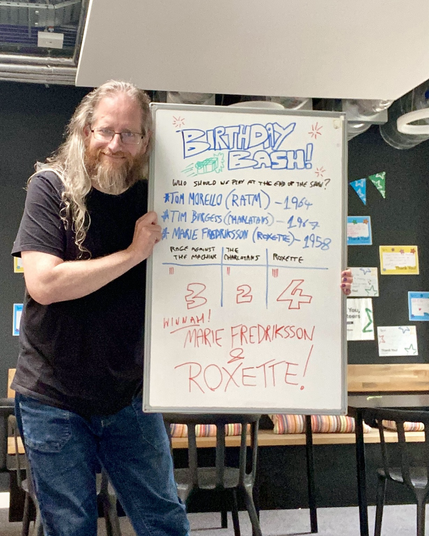 BIRTHDAY
BASH!
WHO SHOULD WE PLAY AT THE END OF THE SHOW?
*TOM MORELLO (RATM) - 1964
*TIM BURGESS (CHARLATANS) - 1967
*MARIE FREDRIKSSON (ROXETTE) - 1958
RAGE AGAINST THE MACHINE
THE CHARLATANS
ROXETTE
3
2
4
WINNAH!
MARIE FREDRIKSSON
&
ROXETTE!